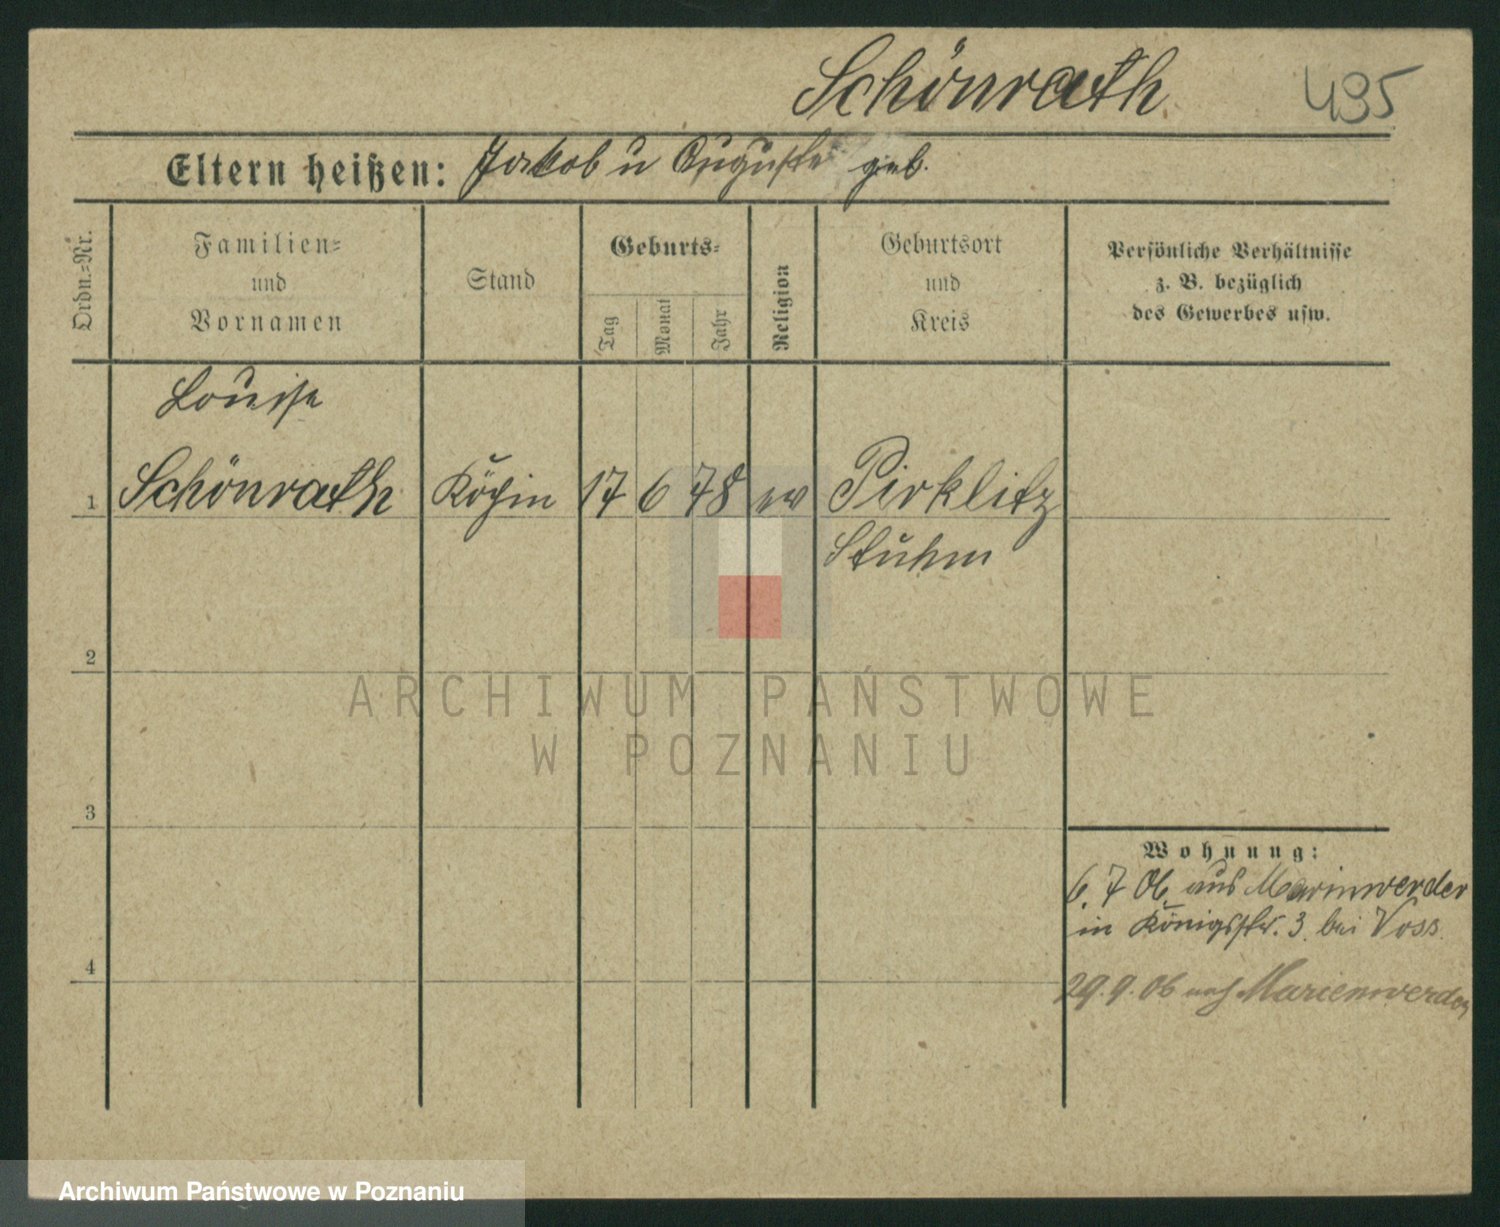 Schönrath 495
Eltern heißen: Jakob u Auguste geb.
Ordn.=Nr.
Familien=
und
Vornamen
Stand
Geburts=
Tag
Monat
Jahr
Religion
Geburtsort
und
Kreis
Persönliche Verhältnisse
z. B. bezüglich
des Gewerbes usw.
Louise
1 Schönrath Köchin 17 6 78 ev Pirklitz
Stuhm
2
ARCHIWUM PAŃSTWOWE
W POZNANIU
3
Wohnung:
6. 7 06 aus Marinwerder
in Königsstr. 3. bei Voss
4
29. 9. 06 nach Marienwerder
Archiwum Państwowe w Poznaniu